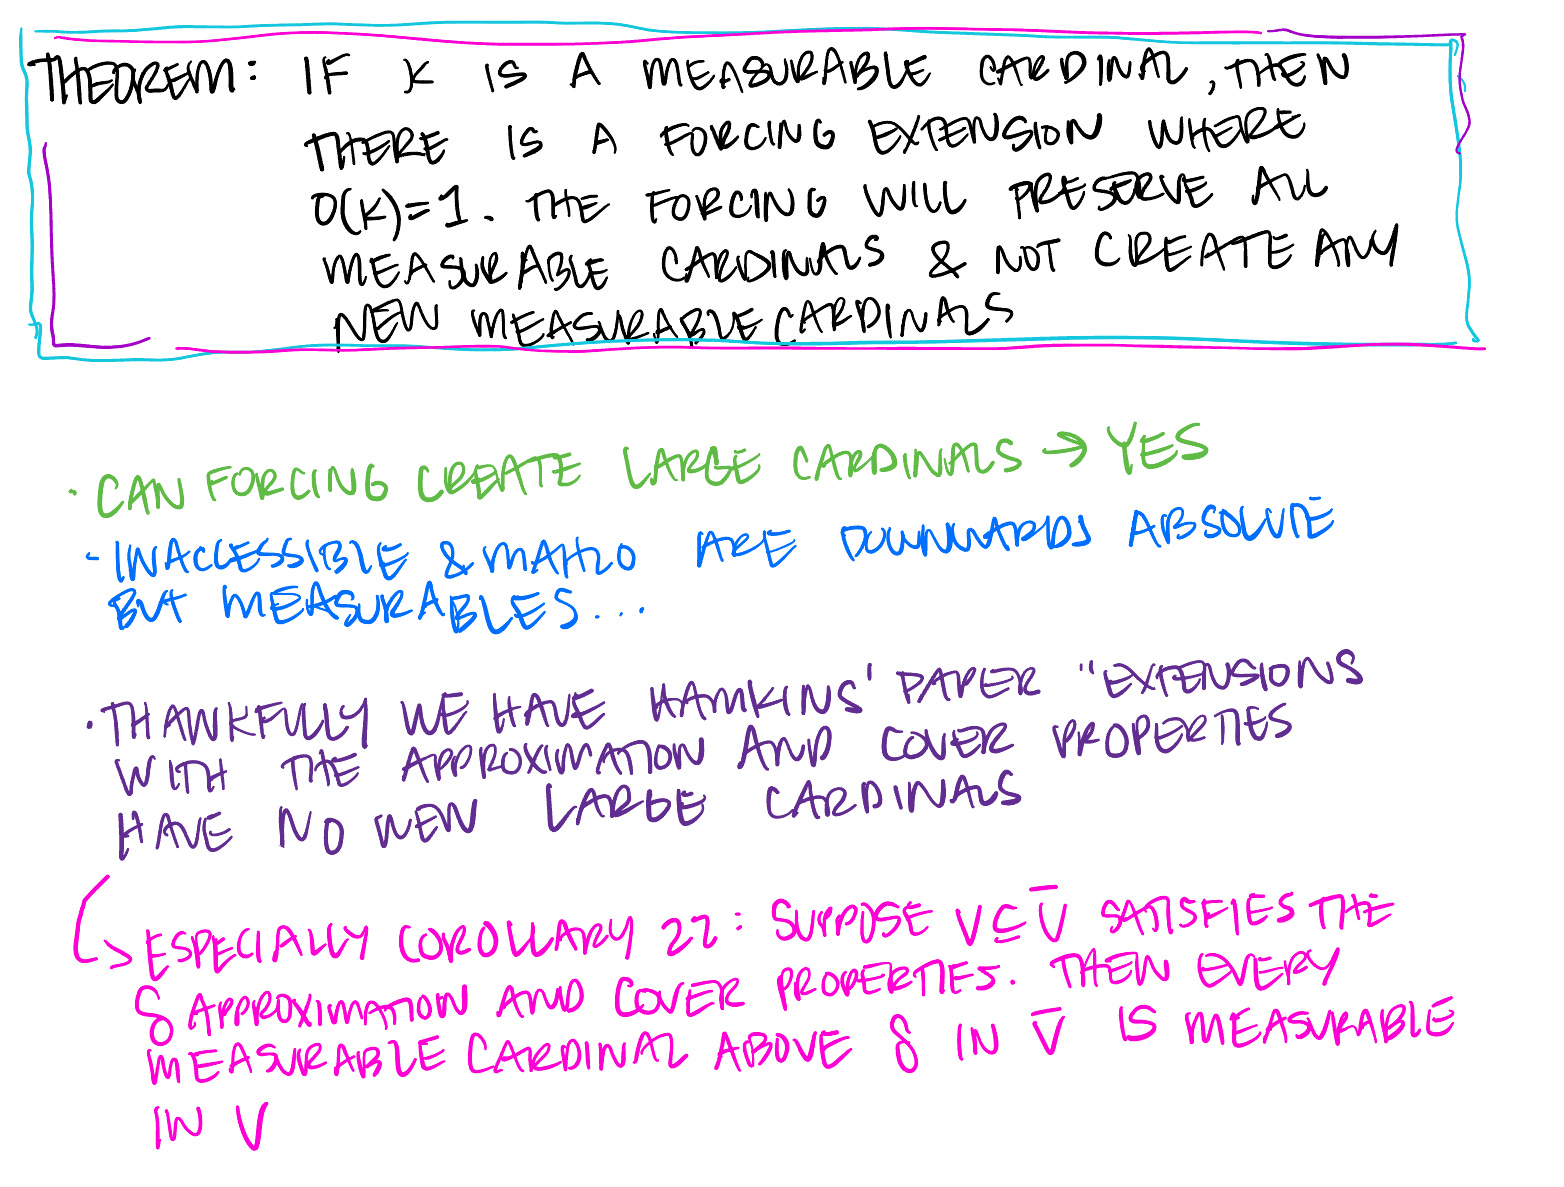 THEOREM: IF K IS A MEASURABLE CARDINAL, THEN
THERE IS A FORCING EXTENSION WHERE
O(K)=1. THE FORCING WILL PRESERVE ALL
MEASURABLE CARDINALS & NOT CREATE ANY
NEW MEASURABLE CARDINALS
· CAN FORCING CREATE LARGE CARDINALS → YES
- INACCESSIBLE & MAHLO ARE DOWNWARDS ABSOLUTE
BUT MEASURABLES...
· THANKFULLY WE HAVE HAMKINS' PAPER "EXTENSIONS
WITH THE APPROXIMATION AND COVER PROPERTIES
HAVE NO NEW LARGE CARDINALS
↳ ESPECIALLY COROLLARY 22: SUPPOSE V ⊆ V̅ SATISFIES THE
δ APPROXIMATION AND COVER PROPERTIES. THEN EVERY
MEASURABLE CARDINAL ABOVE δ IN V̅ IS MEASURABLE
IN V